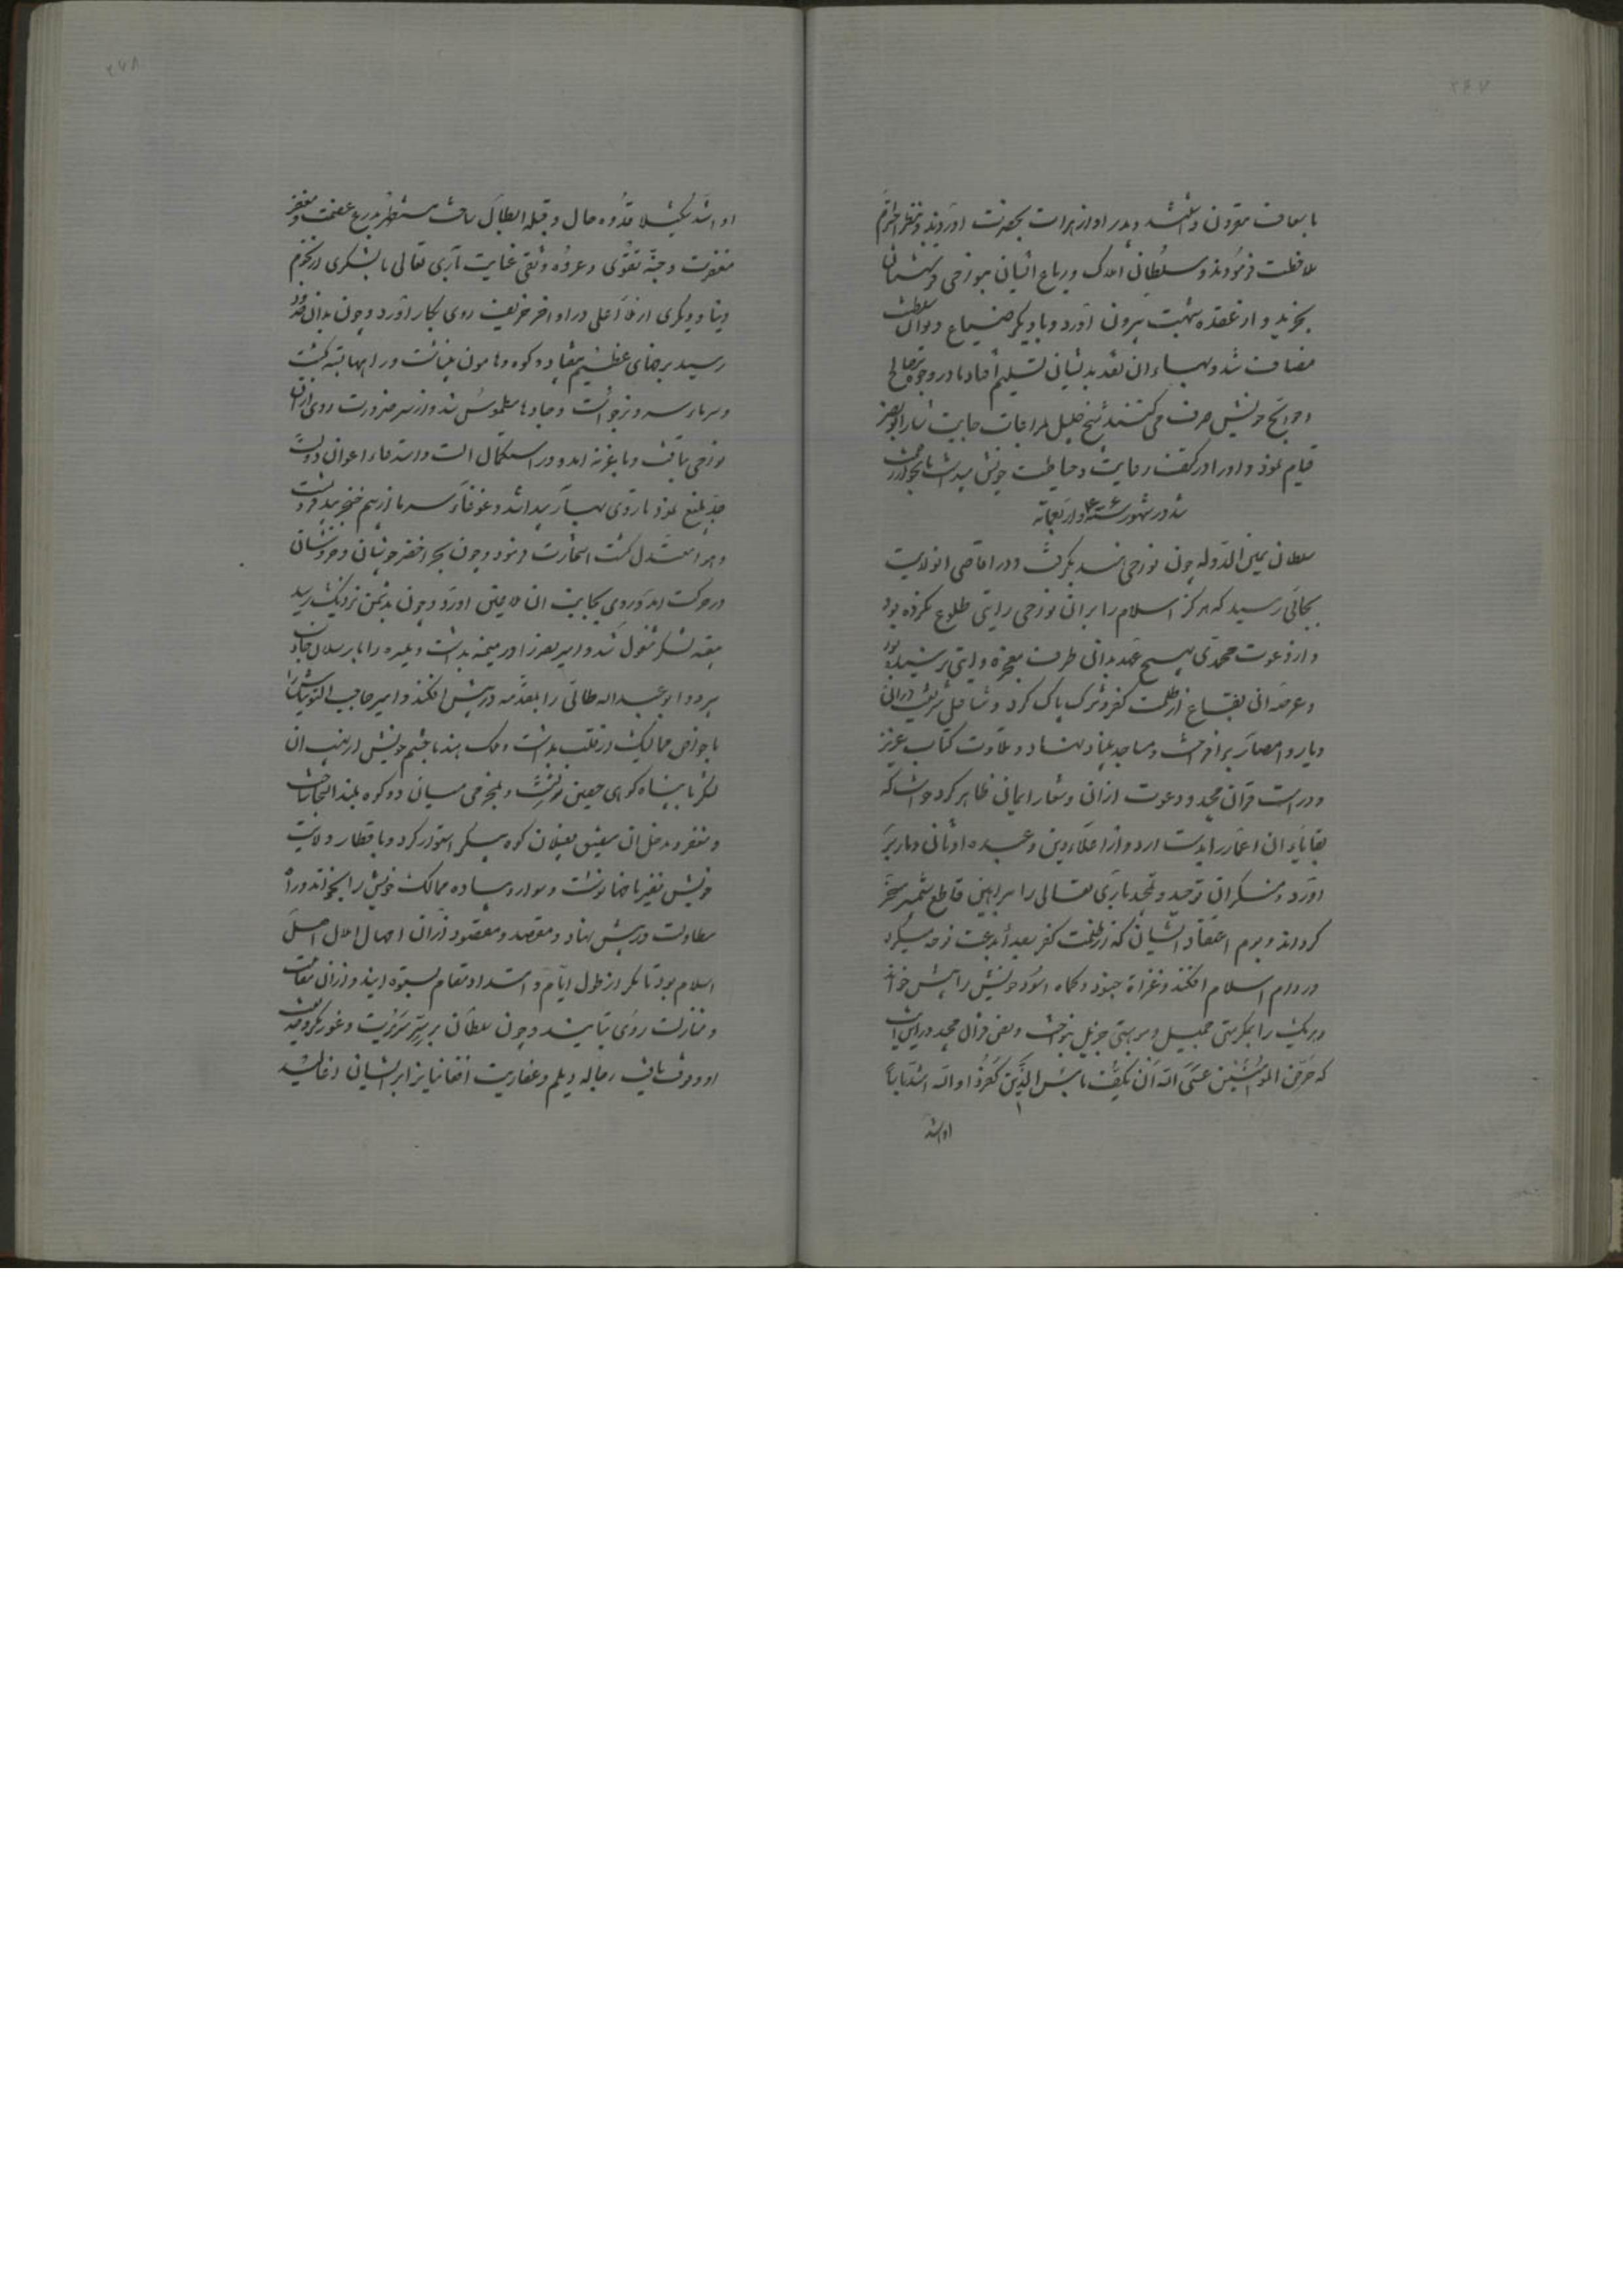 با سعاف مقرون داشتند و پدر او از هرات بحضرت آوردند و بنظر احترام
ملاحظت فرمودند و سلطان املاک و رباع ایشان بنواحی غرشستان
بخرید و از عقده شبهت بیرون آورد و با دیگر ضیاع دیوان سلطنت
مضاف شد و بهاء آن نقد بدیشان تسلیم افتاد تا در وجوه مصالح
و حوایج خویش صرف می کنند شیخ جلیل بمراعات جانب شار ابونصر
قیام نمود و او را در کنف رعایت و حیاطت خویش میداشت تا بجوار رحمت
شد در شهور سنه ۴۰۶ و اربعمائه
سلطان یمین الدوله چون نواحی هند بگرفت و در اقاصی آن ولایت
بجائی رسید که هرگز اسلام را بر آن نواحی رایتی طلوع نکرده بود
و از دعوت محمدی هیچ عهد بدان طرف معجزه و آیتی نرسیده بود
و عرصه آن بقاع از ظلمت کفر و شرک پاک کرد و مشاعل شریعت در آن
دیار و امصار برافروخت و مساجد بنیاد نهاد و تلاوت کتاب عزیز
و دراست قرآن مجید و دعوت اذان و شعار ایمان ظاهر کرد خواست که
بقایاء آن اغمار را بدست آرد و از اعداء دین و عبده اوثان دمار بر
آورد و منکران توحید و تمجید باری تعالی را ببراهین قاطع شمشیر مسخر
گرداند
در دام اسلام افکند و غزاة جنود و کماه اسود خویش را پیش خواند
و هر یک را بمکرمتی جمیل و موهبتی جزیل بنواخت و نص قرآن مجید در این باب
که حرض المؤمنین عسی الله ان یکف باس الذین کفروا و الله اشد باسا
و اشد
و اشد تنکیلا قدوه حال و قبله ابطال ساخت مستظهر بدرع عصمت و مغفر
مغفرت و جنه تقوی و عروه وثقی عنایت باری تعالی با لشکری از نجوم
دنیا و دیگری از ملأ اعلی در اواخر خریف روی بکار آورد و چون بدان حدود
رسید برفهای عظیم بیفتاد و کوه و هامون یکسان گشت و راهها بسته گشت
و سرما و سرد برخواست و جاده ها مطموس شد و از سر ضرورت روی از آن
نواحی بتافت و با غزنه آمد و در استکمال آلت و استدعاء اعوان دولت
جد بلیغ نمود تا روی بهار پیدا شد و غوغاء سرما از بیم خنجر بید فرو نشست
و هوا معتدل گشت استخارت فرمود و چون بحر اخضر جوشان و خروشان
در حرکت آمد و روی بجانب آن ملاعین آورد و چون بدشمن نزدیک رسید
بتعبیه لشکر مشغول شد و امیر نصر را در میمنه بداشت و میسره را بارسلان جاذب
سپرد و ابو عبدالله طائی را بمقدمه در پیش افکند و امیر حاجب التونتاش را
با خواص ممالیک در قلب بداشت و ملک هند با حشم خویش از نهیب آن
لشکر با پناه کوهی حصین گریخت و بمخرمی میان دو کوه بلند التجا ساخت
و منفذ و مدخل آن مضیق بفیلان کوه پیکر استوار کرد و باقطار ولایت
خویش نفیر نامها نوشت و سوار و پیاده ممالک خویش را بخواند و راه
مطاولت در پیش نهاد و مقصد و مقصود از آن امهال املال اهل
اسلام بود تا مگر از طول ایام و امتداد مقام بستوه آیند و از آن مقاومت
و منازلت روی بتابند و چون سلطان بر سر سریرت و غور مکر و خدیعت
او وقوف یافت رجاله دیلم و عفاریت افغانیان را بر ایشان آغالید